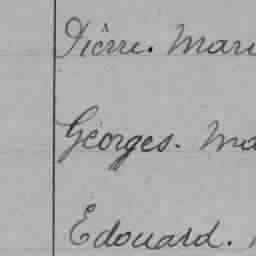 Pierre. Mari
Georges. Ma
Edouard.